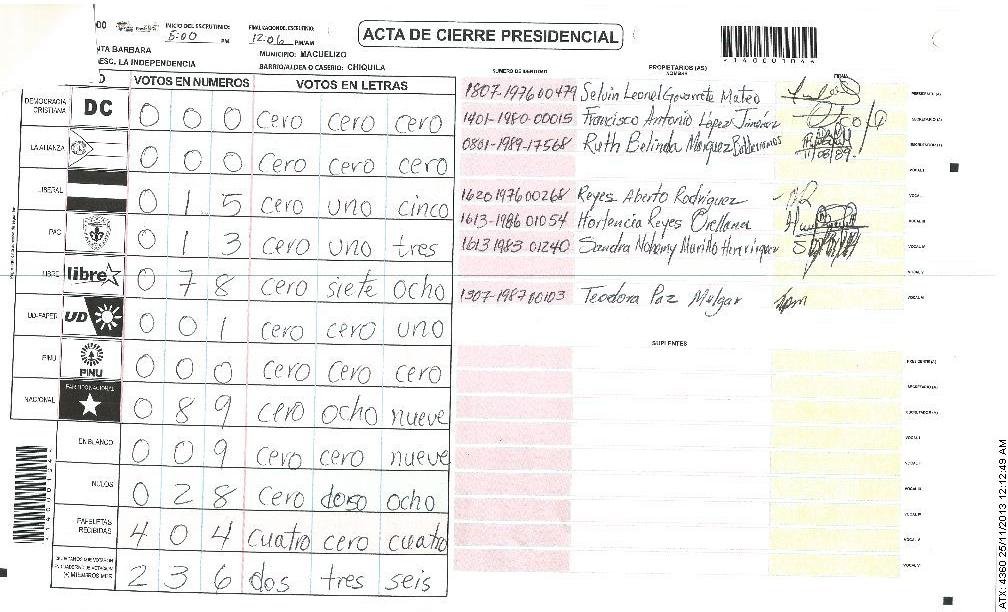 000 INICIO DEL ESCRUTINIO: 5:00 PM FINALIZACION DEL ESCRUTINIO: 12:06 PM/AM
ACTA DE CIERRE PRESIDENCIAL
NTA BARBARA MUNICIPIO: MACUELIZO
ESC. LA INDEPENDENCIA BARRIO/ALDEA O CASERIO: CHIQUILA
VOTOS EN NUMEROS VOTOS EN LETRAS
DEMOCRACIA CRISTIANA DC 0 0 0 cero cero cero
LA ALIANZA 0 0 0 cero cero cero
LIBERAL 0 1 5 cero uno cinco
PAC 0 1 3 cero uno tres
LIBRE libre 0 7 8 cero siete ocho
UD-FAPER UD 0 0 1 cero cero uno
PINU PINU 0 0 0 cero cero cero
NACIONAL PARTIDO NACIONAL 0 8 9 cero ocho nueve
EN BLANCO 0 0 9 cero cero nueve
NULOS 0 2 8 cero ocho
PAPELETAS RECIBIDAS 4 0 4 cuatro cero cuatro
(+) MIEMBROS MER 2 3 6 dos tres seis
NUMERO DE IDENTIDAD PROPIETARIOS (AS) NOMBRE FIRMA
1807-1976 00479 Selvin Leonel Govarrete Mateo PRESIDENTE(A)
1401-1980-00015 Francisco Antonio López Jimenez SECRETARIO(A)
0801-1989-17568 Ruth Belinda Marquez ESCRUTADOR(A)
VOCAL I
1620 1976 00268 Reyes Aberto Rodríguez VOCAL II
1613-1986 01054 Hortencia Reyes Orellana VOCAL III
1613 1983 01240 Sandra Murillo Henrriquez VOCAL IV
VOCAL V
1307-1987 00103 Teodora Paz Melgar VOCAL VI
SUPLENTES
PRESIDENTE(A)
SECRETARIO(A)
ESCRUTADOR(A)
VOCAL I
VOCAL II
VOCAL III
VOCAL IV
VOCAL V
VOCAL VI
ATX: 4360 25/11/2013 12:12:49 AM